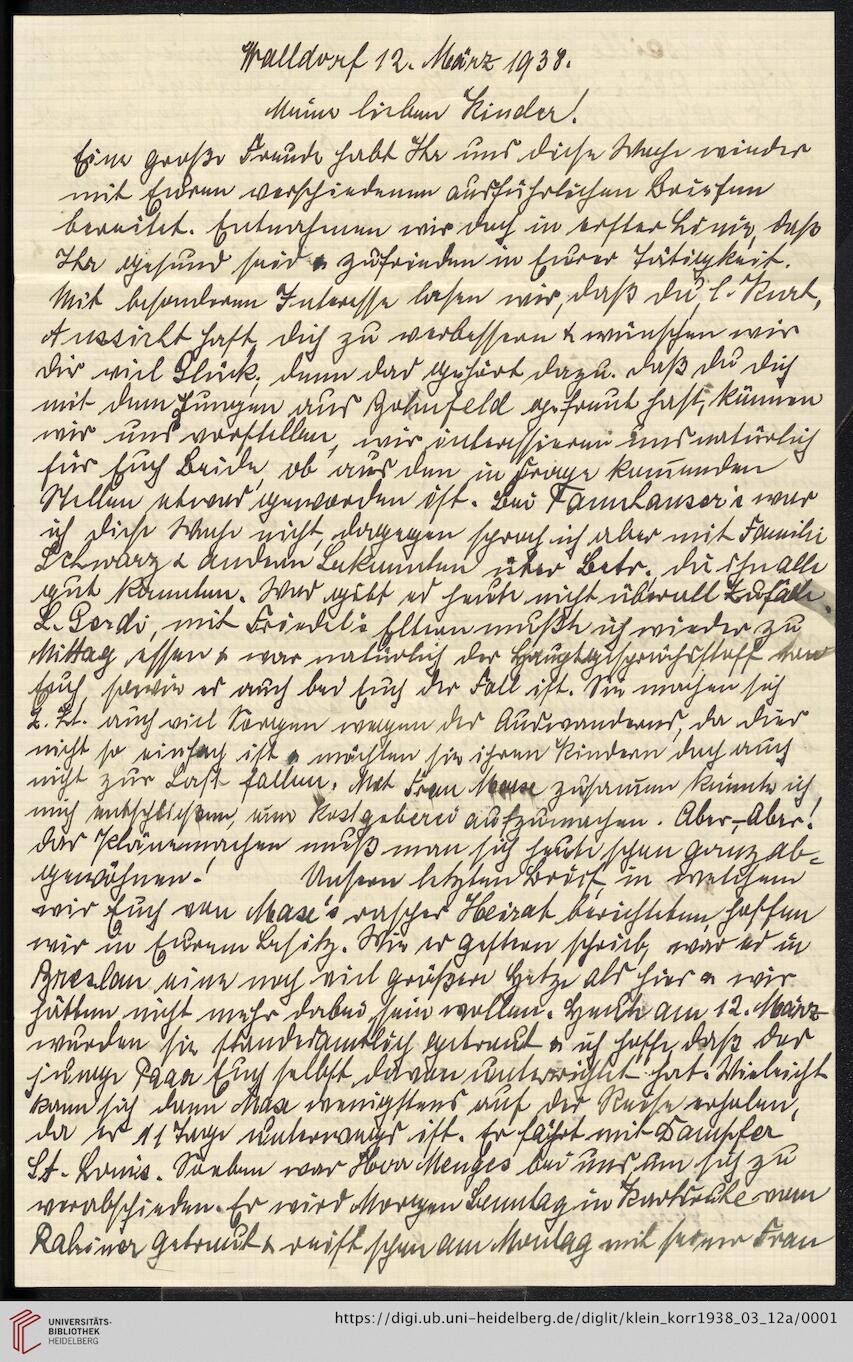 Walldorf 12. März 1938.
Meine lieben Kinder!
Eine große Freude habt Ihr uns diese Woche wieder
mit Euren verschiedenen ausführlichen Briefen
bereitet. Entnahmen wir doch in erster Linie, daß
Ihr gesund seid & zufrieden in Eurer Tätigkeit.
Mit besonderem Interesse lasen wir, daß du, l. Kurt,
Aussicht hast, dich zu verbessern & wünschen wir
dir viel Glück, denn das gehört dazu. Daß du dich
mit dem Jungen aus Bohnfeld gefreut hast, können
wir uns vorstellen, wir interessieren uns natürlich
für Euch Beide, ob aus den in Frage kommenden
Stellen etwas geworden ist. Bei Tannhauser's war
ich diese Woche nicht, dagegen sprach ich aber mit Familie
Schwarz & andern Bekannten über Betr., die ihn alle
gut kannten. Was gibt es heute nicht überall Zufälle.
L. Gerdi, mit Friedel's Eltern mußte ich wieder zu
Mittag essen & war natürlich der Hauptgesprächsstoff von
Euch, sowie es auch bei Euch der Fall ist. Sie machen sich
z. Zt. auch viel Sorgen wegen des Auswanderns, da dies
nicht so einfach ist & möchten sie ihren Kindern doch auch
nicht zur Last fallen. Mit Frau zusammen könnte ich
mich entschließen, eine Kostgeberei aufzumachen. Aber, Aber!
das Plänemachen muß man sich heute schon ganz ab-
gewöhnen.! Unsern letzten Brief, in welchem
wir Euch von Max's rascher Heirat berichteten, hoffen
wir in Eurem Besitz. Wie er gestern schrieb, war es in
Breslau eine noch viel größere Hetze als hier & wir
hätten nicht mehr dabei sein wollen. Heute am 12. März
wurden sie standesamtlich getraut & ich hoffe, daß das
junge Paar Euch selbst davon unterrichtet hat. Vielleicht
kann sich dann Max wenigstens auf der Reise erholen,
da er 11 Tage unterwegs ist. Er fährt mit Dampfer
St. Louis. Soeben war Herr Menges bei uns um sich zu
verabschieden. Er wird Morgen Sonntag in Karlsruhe vom
Rabiner getraut & reist schon am Montag mit seiner Frau
UNIVERSITÄTS-
BIBLIOTHEK
HEIDELBERG
https://digi.ub.uni-heidelberg.de/diglit/klein_korr1938_03_12a/0001